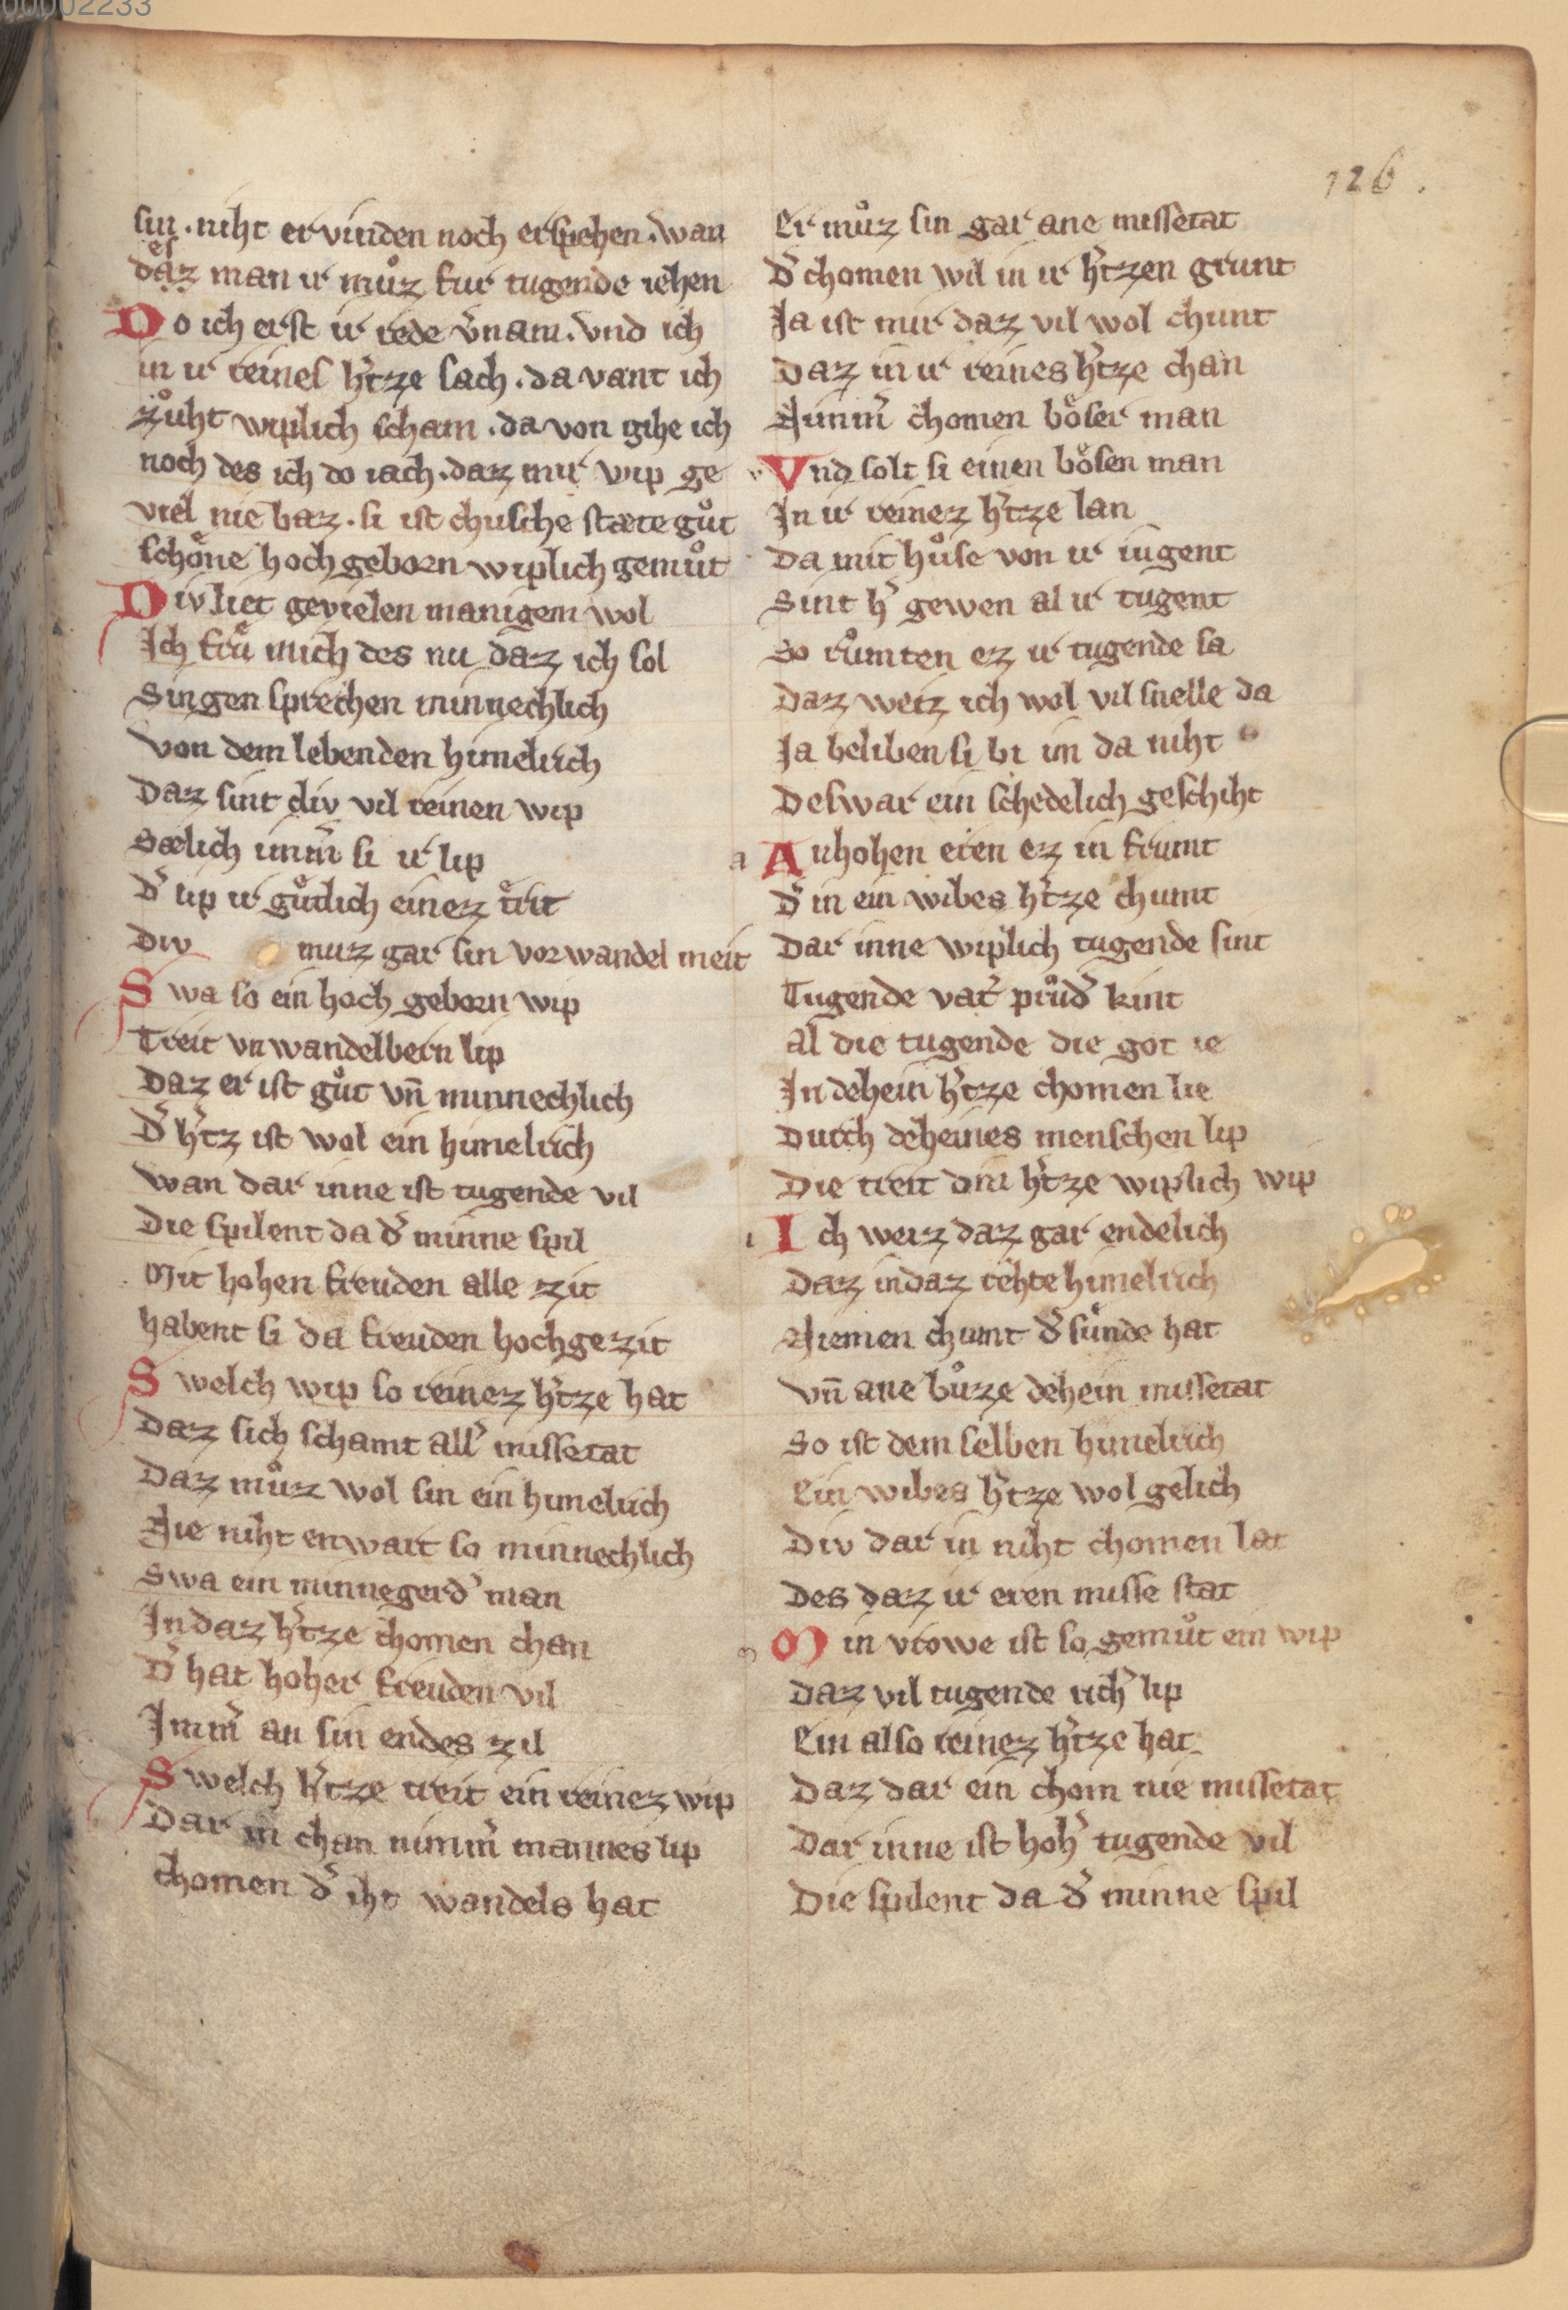 00002233
126.
sin . niht ervinden noch erspehen . wan
es
daz man ir můz fur tugende iehen
Do ich erst ir rede v̄nam . vnd ich
in ir reines h̓tze sach . da vant ich
zůht wiplich scham . da von gihe ich
noch des ich do iach . daz mir wip ge
viel nie baz . si ist chusche stæte gůt
schoͤne hochgeborn wiplich gemůt
Div liet gevielen manigem wol
Ich frăͤ mich des nu daz ich sol
Singen sprechen minnechlich
Von dem lebenden himelrich
Daz sint div vil reinen wip
Sælich imm̄ si ir lip
D̓ lip ir gůtlich einez trit
Div muz gar sin vor wandel meit
Swa so ein hoch geborn wip
Treit vnwandelbern lip
Daz er ist gůt vn̄ minnechlich
D̓ h̓tz ist wol ein himelrich
wan dar inne ist tugende vil
Die spilent da d̓ minne spil
Mit hohen freuden alle zit
habent si da freuden hochgezit
Swelch wip so reinez h̓tze hat
Daz sich schamt all̓ missetat
Daz můz wol sin ein himelrich
Nie niht enwart so minnechlich
Swa ein minnegerd̓ man
In daz h̓tze chomen chan
D̓ hat hoher freuden vil
Imm̄ an sin endes zil
Swelch h̓tze treit ein reinez wip
Dar in chan nimm̄ mannes lip
chomen d̓ iht wandels hat
Er můz sin gar ane missetat
D̓ chomen wil in ir h̓tzen grunt
Ja ist mir daz vil wol chunt
Daz in ir reines h̓tze chan
Nimm̄ chomen boͤser man
v Vnd solt si einen boͤsen man
In ir reinez h̓tze lan
Da mit hůse von ir iugent
Sint h̓ gewen al ir tugent
So růmten ez ir tugende sa
Daz weiz ich wol vil snelle da
Ja beliben si bi im da niht
Deswar ein schedelich geschiht
a Anhohen eren ez in frumt
D̓ in ein wibes h̓tze chumt
Dar inne wiplich tugende sint
Tugende vat̓ průd̓ kint
Al die tugende die got ie
In dehein h̓tze chomen lie
Durch deheines menschen lip
Die treit drin h̓tze wiplich wip
i Ich weiz daz gar endelich
Daz in daz rehte himelrich
Niemen chumt d̓ suͤnde hat
Vn̄ ane bůze dehein missetat
So ist dem selben himelrich
Ein wibes h̓tze wol gelich
Div dar in niht chomen lat
Des daz ir eren misse stat
m Min vrowe ist so gemůt ein wip
Daz vil tugende rich̓ lip
Ein also reinez h̓tze hat
Daz dar ein chom nie missetat
Dar inne ist hoh̓ tugende vil
Die spilent da d̓ minne spil